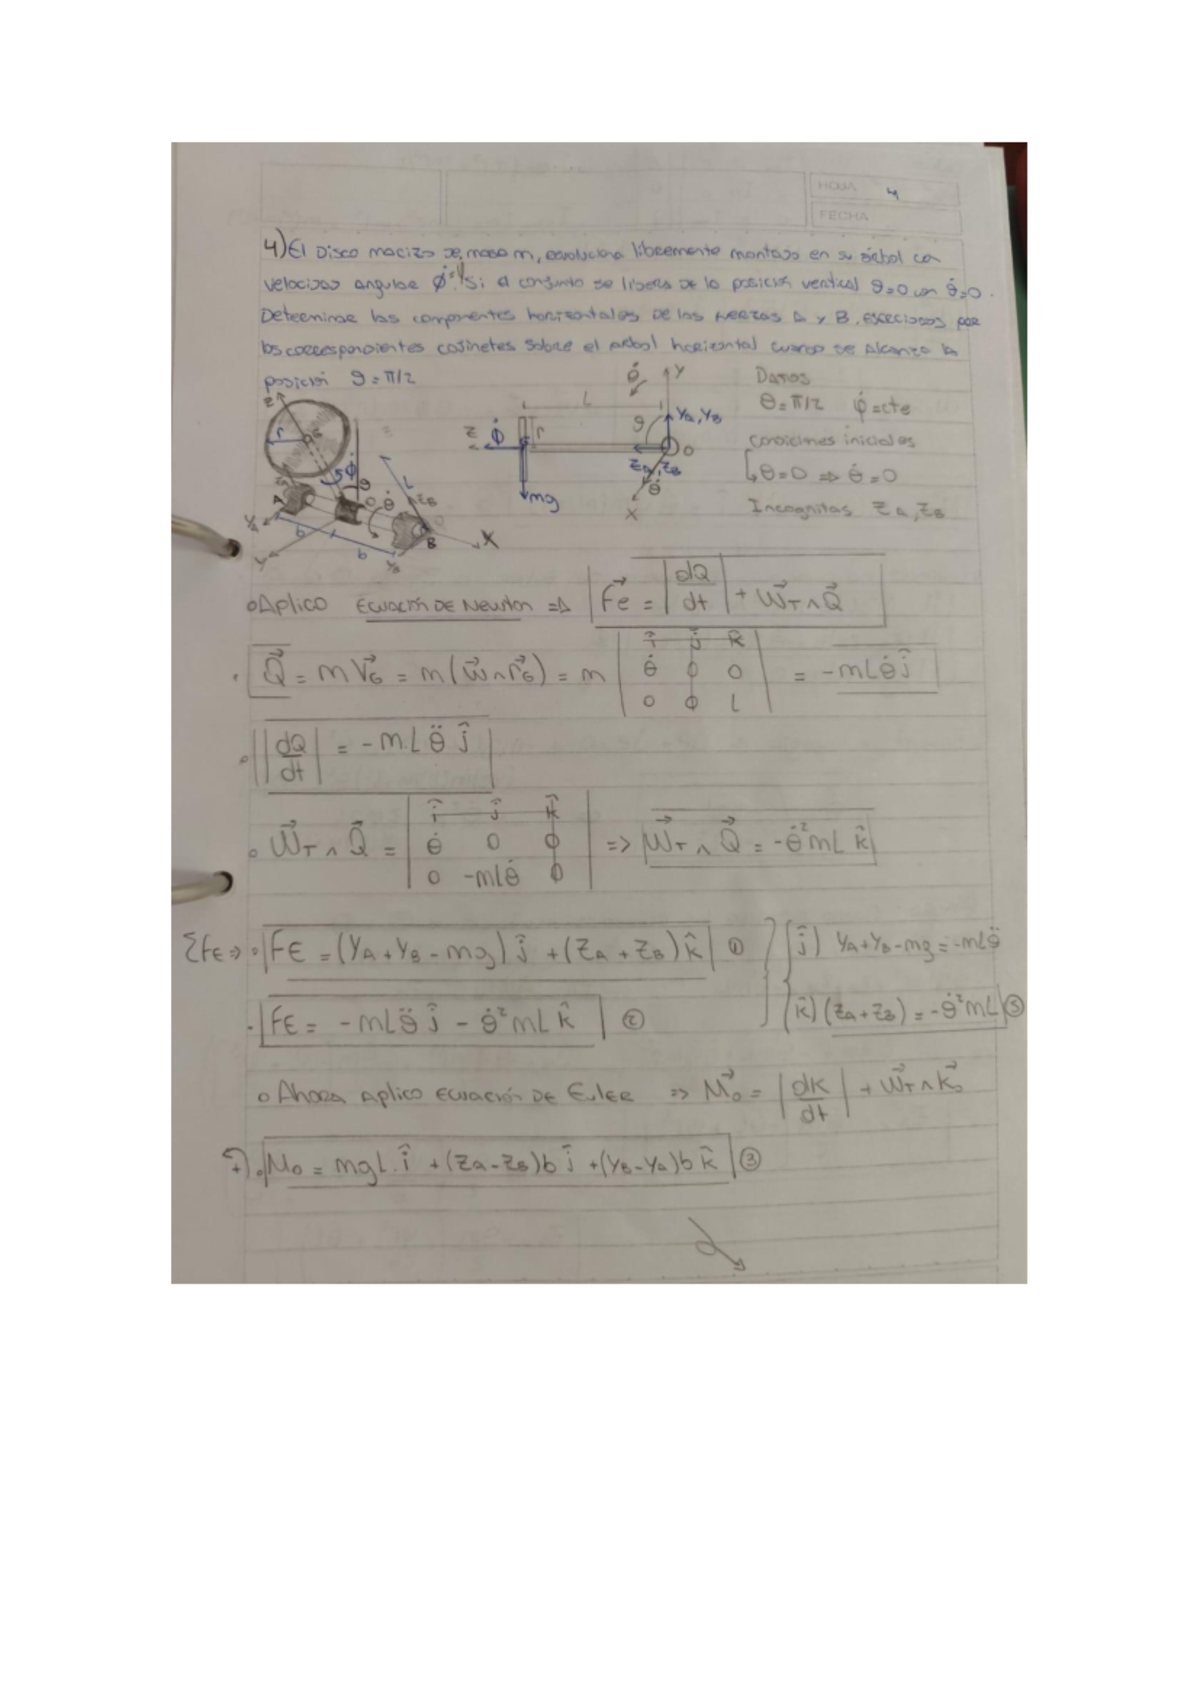 HOJA 4
FECHA
4) El Disco macizo de masa m, evoluciona libremente montado en su árbol con
velocidad angular φ̇. Si el conjunto se libera de la posición vertical θ=0 con θ̇=0.
Determinar las componentes horizontales de las fuerzas A y B, ejercidas por
los correspondientes cojinetes sobre el arbol horizontal cuando se alcanza la
posición θ=π/2
Datos
θ=π/2 φ̇=cte
condiciones iniciales
↳θ=0 ⇒ θ̇=0
Incognitas ZA, ZB
Z r G φ̇ θ L A O θ̇ ZB YA b Y b YB B X
Z φ̇ r L θ̇ Y YA, YB θ O ZA, ZB θ̇ X mg
Aplico Ecuación de Newton ⇒ Fe = |dQ/dt| + WT ∧ Q
Q = m VG = m (w ∧ rG) = m | i j k ; θ̇ 0 0 ; 0 0 L | = -mLθ̇ j
|dQ/dt| = -m.L θ̈ j
WT ∧ Q = | i j k ; θ̇ 0 0 ; 0 -mLθ̇ 0 | => WT ∧ Q = -θ̇² mL k
ΣFE ⇒ FE = (YA + YB - mg) j + (ZA + ZB) k ① j) YA+YB-mg = -mLθ̈
FE = -mLθ̈ j - θ̇² mL k ② k) (ZA+ZB) = -θ̇² mL ⑤
Ahora Aplico Ecuación de Euler => Mo = |dk/dt| + WT ∧ Ko
Mo = mgL.i + (ZA-ZB)b j + (YB-YA)b k ③